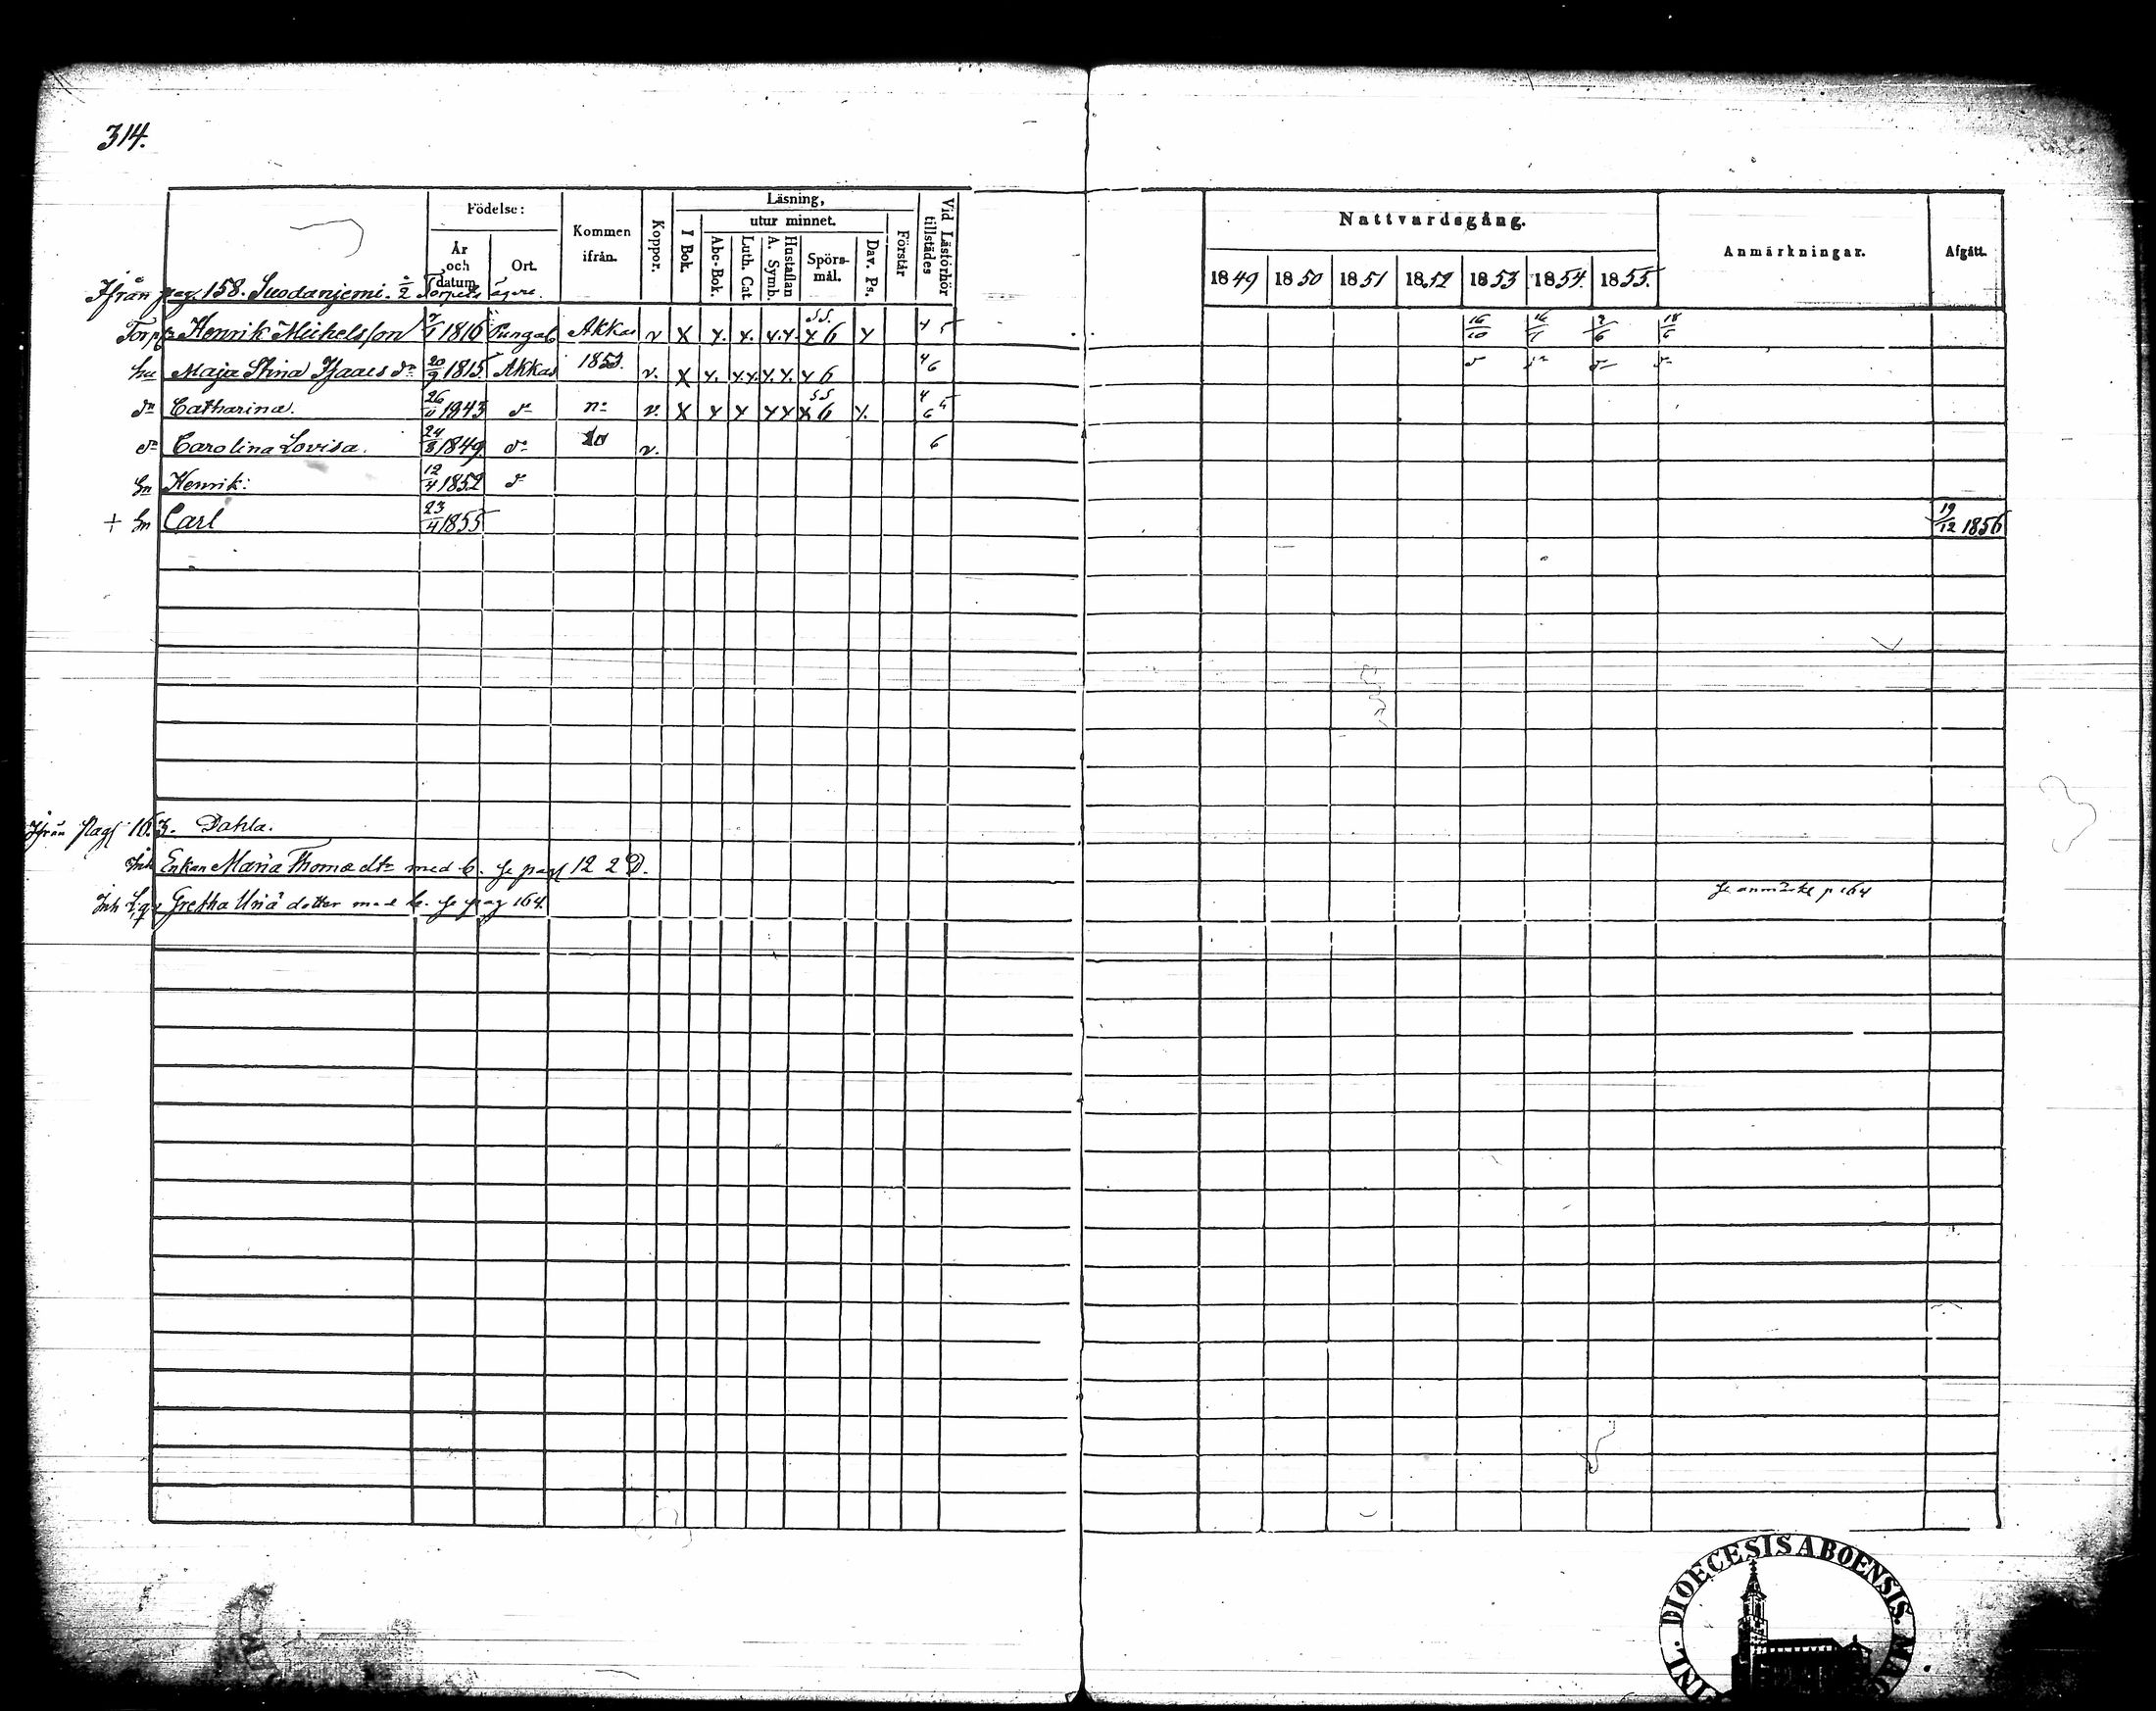 314.
Födelse: Kommen ifrån. Koppor. Läsning, Vid Lästörhör tillstädes
År och datum Ort. I Bok. utur minnet. Förstår
Abc-Bok. Luth. Cat Hustaflan A. Symb. Spörs-mål. Dav. Ps.
Nattvardsgång. Anmärkningar. Afgått.
1849 1850 1851 1852 1853 1854. 1855.
Ifrån pag. 158. Suodanjemi. ½ Torpets ägare.
Torp Henrik Michelsson 1816 Pungal Akkas v X x. x. x.x. x 6 x 4 5 16/10 2/6 18/6
hu Maja Stina Isaacs dr 20/9 1815. Akkas 1853. v. X x. x.x. x. x. x 6 4 6
dr Catharina. 26/11 1843 dº v. X x x x x x 6 x. 4 6 5
dr Carolina Lovisa. 24/8 1849. dº v. 6
Sn Henrik: 12/4 1852 dº
+ Sn Carl 23/4 1855 19/12 1856
Ifrån pag 163. Dahla.
Inh Enkan Maria Thomæ dtr med b. se pag 122 D.
Inh Gretha dotter med b. se pag 164. se anmärk p 164
FINL. DIOECESIS ABOENSIS. MAG